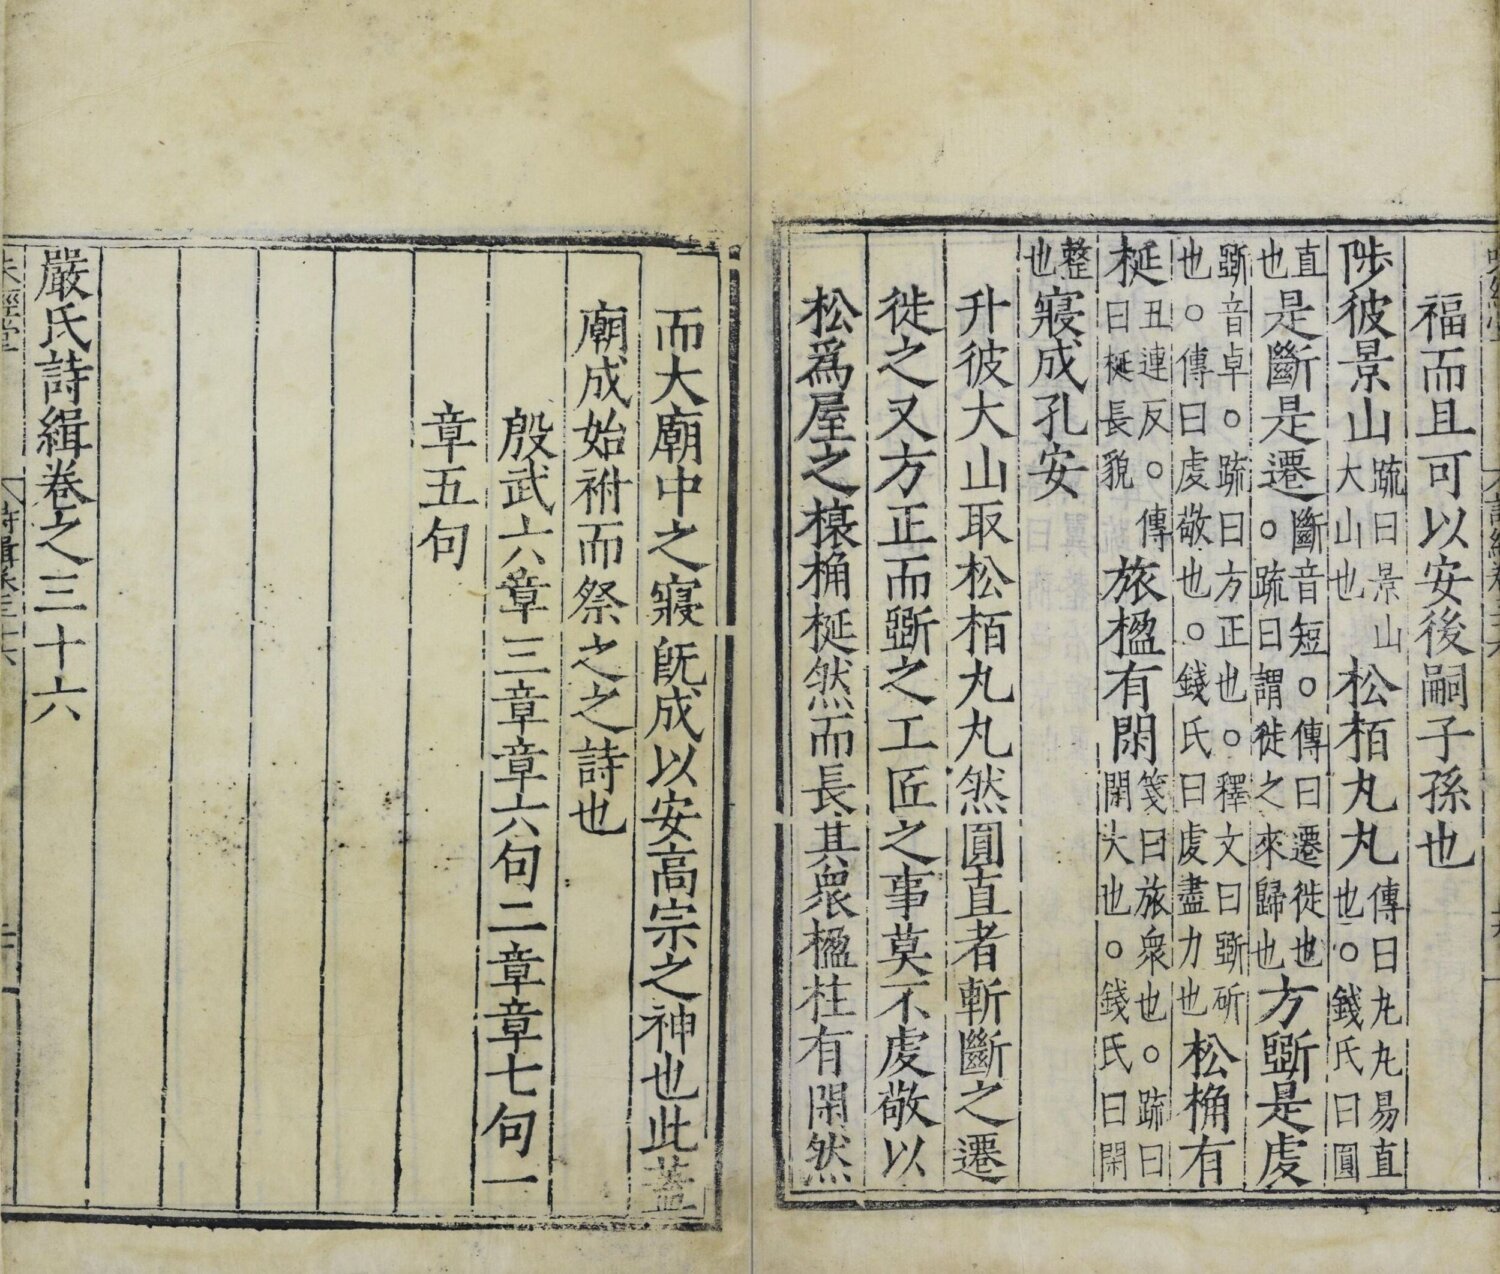 福而且可以安後嗣子孫也
陟彼景山疏曰景山大山也松栢丸丸傳曰丸丸易直也○錢氏曰圓
直也是斷是遷斷音短○傳曰遷徙也○疏曰謂徙之來歸也方斲是虔
斲音卓○疏曰方正也○釋文曰斲斫也○傳曰虔敬也○錢氏曰虔盡力也松桷有
梴丑連反○傳曰梴長貌旅楹有閑箋曰旅衆也○疏曰閑大也○錢氏曰閑
整也寢成孔安
升彼大山取松栢丸丸然圓直者斬斷之遷
徙之又方正而斲之工匠之事莫不虔敬以
松爲屋之榱桷梴然而長其衆楹柱有閑然
而大廟中之寢既成以安高宗之神也此蓋
廟成始祔而祭之之詩也
殷武六章三章章六句二章章七句一
章五句
嚴氏詩緝卷之三十六